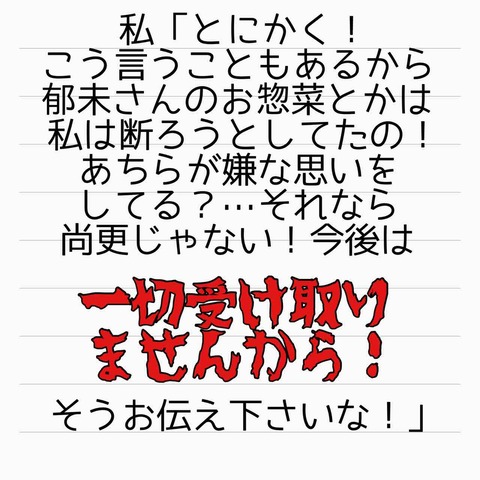 私「とにかく！
こう言うこともあるから
郁未さんのお惣菜とかは
私は断ろうとしてたの！
あちらが嫌な思いを
してる？…それなら
尚更じゃない！今後は
一切受け取り
ませんから！
そうお伝え下さいな！」